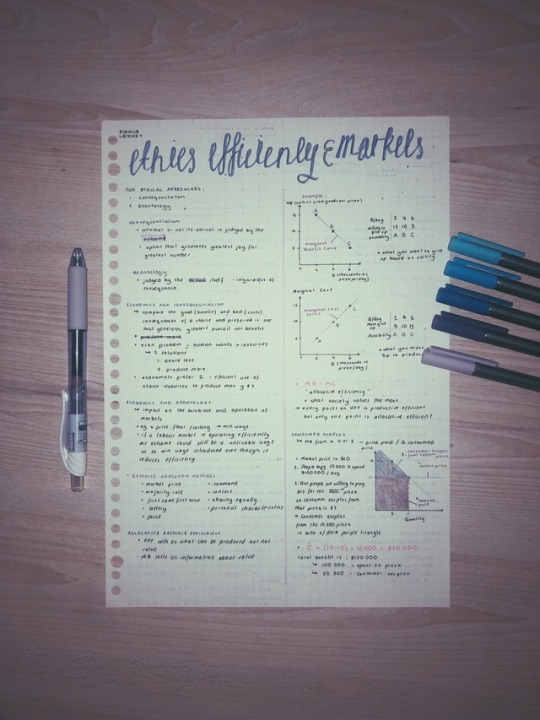 ethics efficiency & markets
TWO ETHICAL APPROACHES:
1. Consequentialism
2. Deontology
consequentialism
• whether or not its ethical is judged by the
outcome
• option that generates greatest joy for
greatest number
deontology
• judged by the action itself - regardless of
consequence
ECONOMICS AND CONSEQUENTIALISM
↳ compare the good (benefits) and bad (costs)
consequences of a choice and preferred is one
that generates greatest overall net benefits
• econ problem - human wants > resources
↳ 2 solutions
1. desire less
2. produce more
• economists prefer 2 - efficient use of
scarce resources to produce max g & s
ECONOMICS AND DEONTOLOGY
↳ impact on the existence and operation of
markets
• eg a price floor / ceiling → min wages
• if a labour market is operating efficiently
the outcome could still be a undesirable wage
so min wage introduced even though it
reduces efficiency
• RESOURCE ALLOCATION METHODS
• market price
• majority rule
• first come first serve
• lottery
• force
• command
• contest
• sharing equally
• personal characteristics
ALLOCATIVE RESOURCE EFFICIENCY
• PPF tells us what can be produced but not
value
• MB tells us information about value
EXAMPLE:
Marginal
Benefit Curve
possibility A B C
• what you want to give
up based on utility
Marginal Cost
marginal cost
curve
possibility A B C
• MB = MC
"allocative efficiency"
• what society values the most
→ every point on PPF is productive efficient
but only one point is allocative efficient
CONSUMER SURPLUS
1. Market price is $10
2. People buy 10 000 & spend
$100 000 / day
3. But people are willing to pay
$15 for the 5000th pizza
so consumer surplus from
that pizza is $5
• Consumer surplus
from the 10 000 pizza
is area of dark purple triangle
consumer surplus
market price
Quantity
Total benefit is: $150 000
↳ 100 000 = spent on pizza
↳ 50 000 = consumer surplus